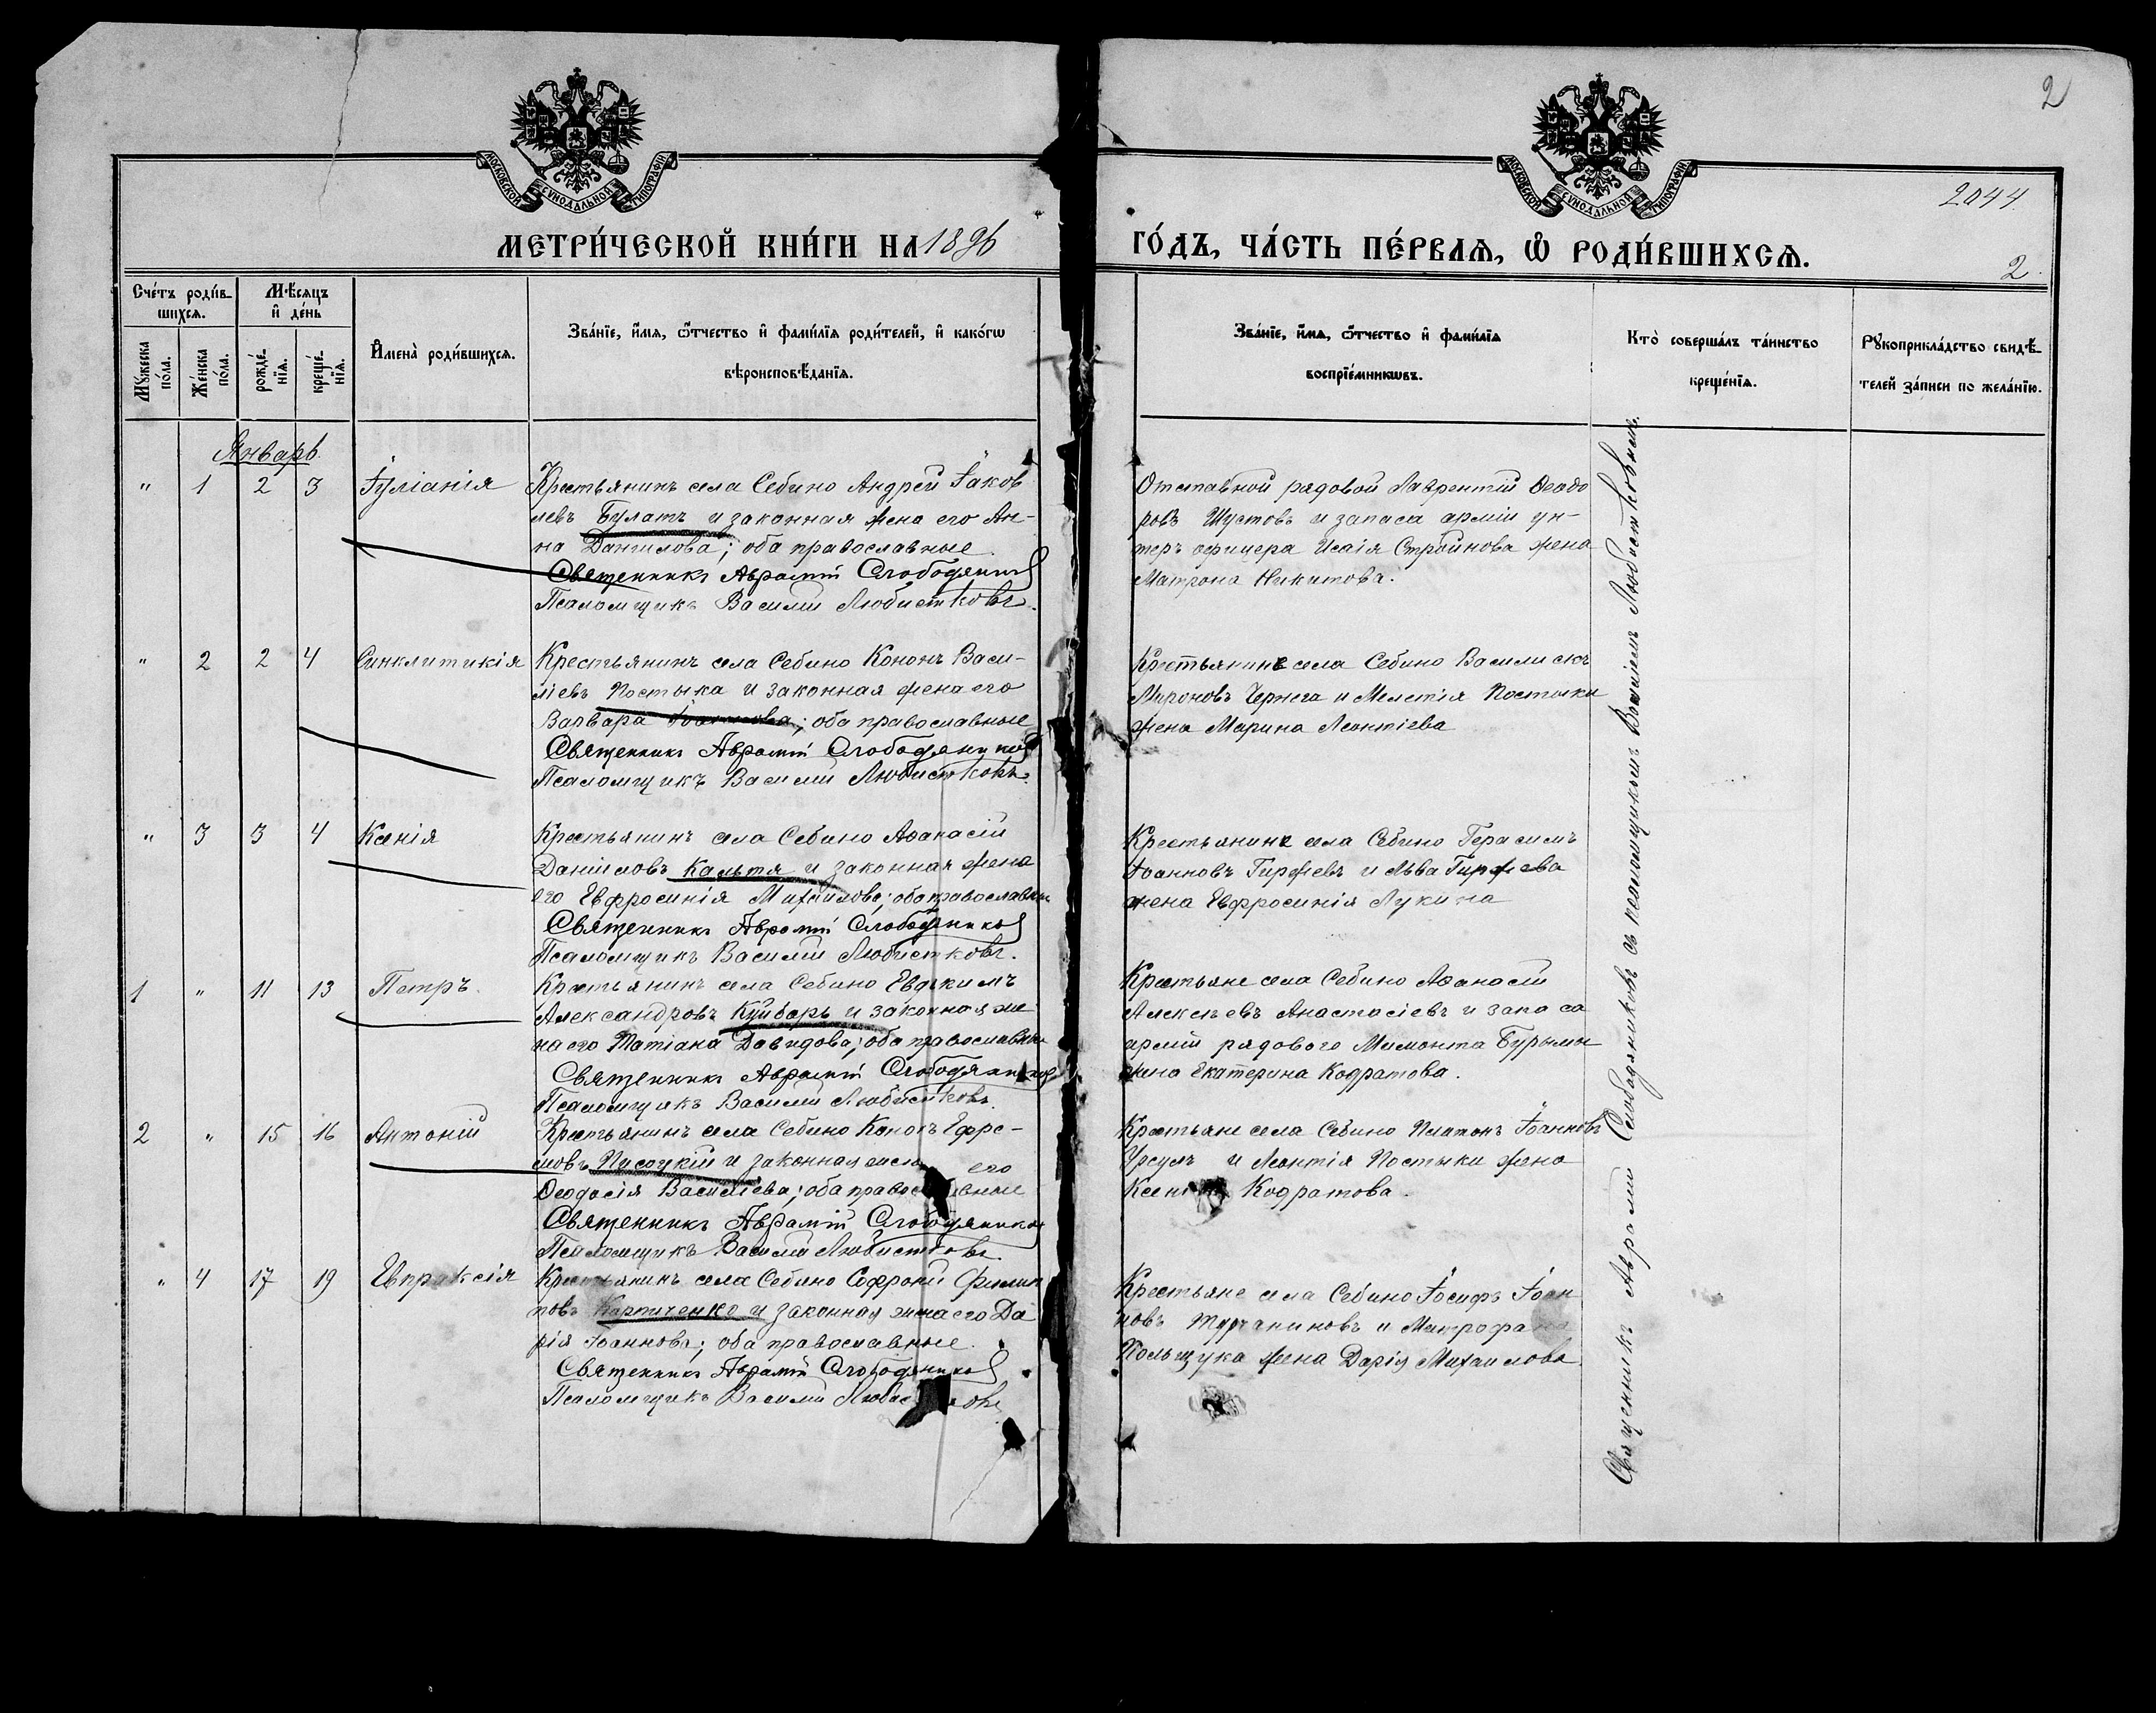 2
МОСКОВСКОЙ СѴНОДАЛЬНОЙ ТИПОГРАФІИ
МОСКОВСКОЙ СѴНОДАЛЬНОЙ ТИПОГРАФІИ
2044.
МЕТРИ́ЧЕСКОЙ КНИ́ГИ НА 1896
ГО́ДЪ, ЧА́СТЬ ПЕ́РВАѦ, Ѽ РОДИ́ВШИХСѦ.
2.
Сче́тъ роди́в-
шихсѧ.
Мѣ́сѧцъ
и҆ де́нь
Мꙋ́жеска по́ла.
Же́нска по́ла.
рожде́-
нїѧ.
креще́-
нїѧ.
И҆мена̀ роди́вшихсѧ.
Зва́нїе, и҆́мѧ, ѻ҆́тчество и҆ фами́лїѧ роди́телей, и҆ како́гѡ
вѣроисповѣ́данїѧ.
Зва́нїе, и҆́мѧ, ѻ҆́тчество и҆ фами́лїѧ
воспрїе́мникѡвъ.
Кто̀ соверша́лъ та́инство
креще́нїѧ.
Рꙋкоприкла́дство свидѣ́-
телей за́писи по жела́нїю.
Январь.
" 1 2 3 Іуліанія
Крестьянинъ села Себино Андрей Іаков
левъ Булатъ и законная жена его Ан-
на Данилова; оба православные.
Священникъ Аврамій Слободяников
Псаломщикъ Василій Любистковъ.
Отставной рядовой Лаврентій Ѳеодо
ровъ Шустовъ и запаса арміи ун-
теръ офицера Исаія Стройнова жена
Матрона Никитова.
" 2 2 4 Синклитикія
Крестьянинъ села Себино Кононъ Васи-
ліевъ Постыка и законная жена его
Варвара Іоаннова; оба православные
Священникъ Аврамій Слободяников
Псаломщикъ Василій Любистковъ.
Крестьянинъ села Себино Василискъ
Мироновъ Чернега и Мелетія Постыки
жена Марина Леонтіева
" 3 3 4 Ксенія
Крестьянинъ села Себино Аѳанасій
Даніиловъ Кальтя и законная жена
его Евфросинія Михайлова; оба православные
Священникъ Аврамій Слободяников
Псаломщикъ Василій Любистковъ.
Крестьянинъ села Себино Герасимъ
Іоанновъ Гиржевъ и Льва Гиржева
жена Евфросинія Лукина
1 " 11 13 Петръ.
Крестьянинъ села Себино Евдокимъ
Александровъ Куйбарь и законная же-
на его Татіана Давидова; оба православные
Священникъ Аврамій Слободяников
Псаломщикъ Василій Любистковъ.
Крестьяне села Себино Аѳанасій
Алексѣевъ Анастасіевъ и запаса
арміи рядового Мамонта Бурымы
жена Екатерина Кодратова.
2 " 15 16 Антоній
Крестьянинъ села Себино Кононъ Ефре-
мовъ Писоцкій и законная жена его
Ѳеодосія Василіева; оба православные
Священникъ Аврамій Слободяников
Псаломщикъ Василій Любистковъ.
Крестьяне села Себино Платонъ Іоанновъ
Урсулъ и Леонтія Постыки жена
Ксенія Кодратова.
" 4 17 19 Евпраксія
Крестьянинъ села Себино Софроній Филип
повъ Карпиченко и законная жена его Да
рія Іоаннова; оба православные.
Священникъ Аврамій Слободяников
Псаломщикъ Василій Любистковъ
Крестьяне села Себино Іосифъ Іоан
новъ Турчаниновъ и Митрофана
Польщука жена Дарія Михаилова.
Священникъ Аврамій Слободяниковъ съ псаломщикомъ Василіемъ Любистковымъ.